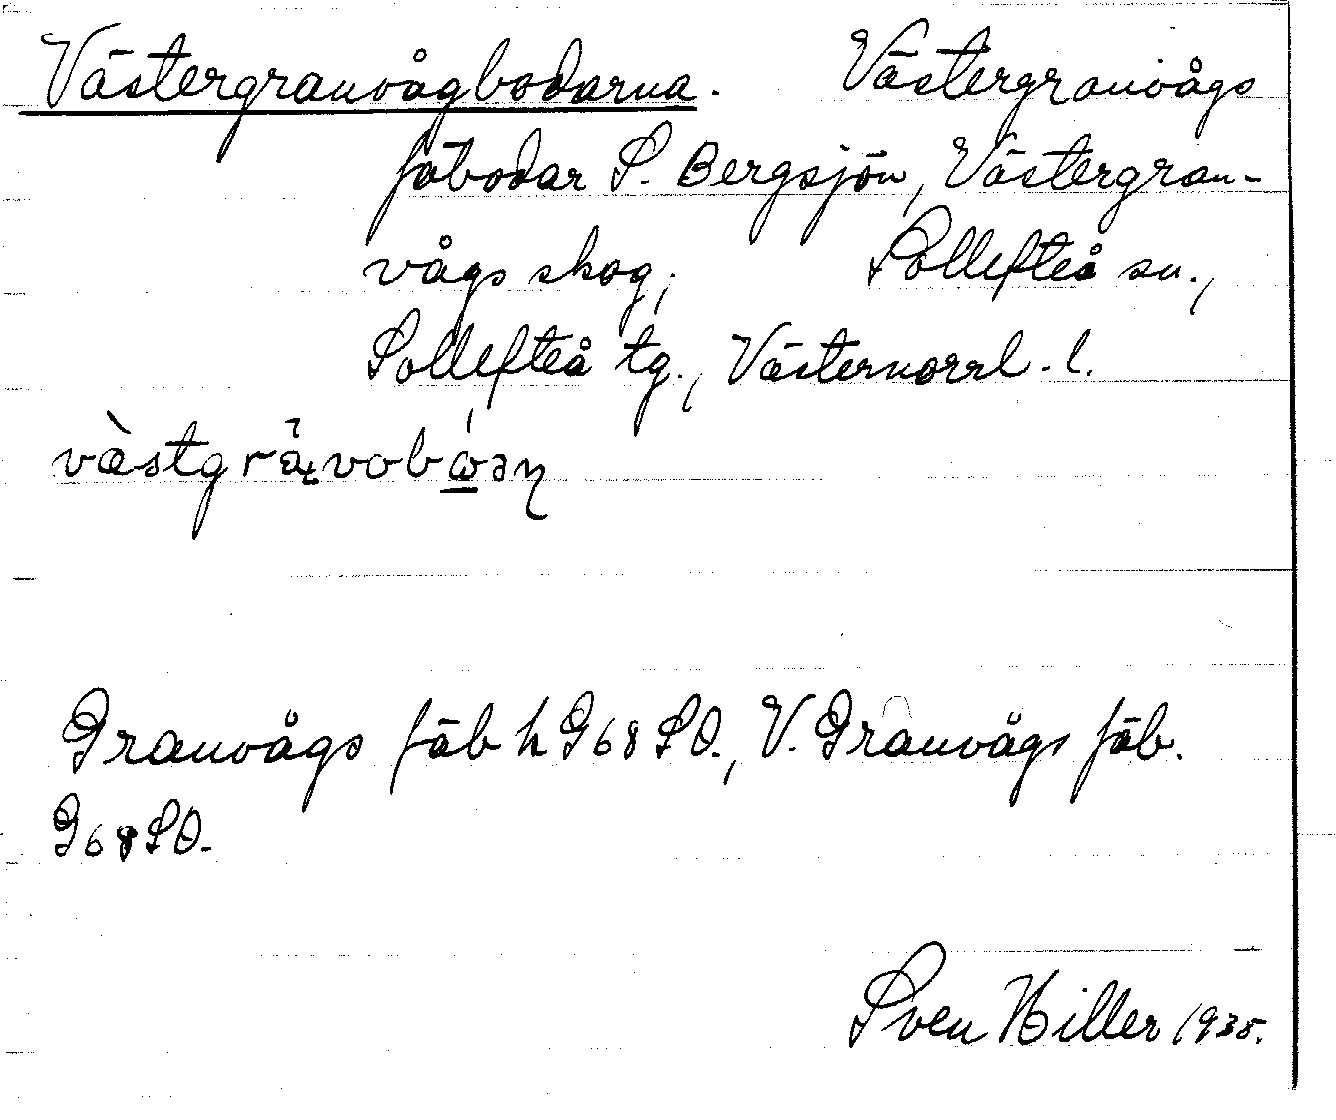 Västergranvågbodarna. Västergranvågs
fäbodar S. Bergsjön, Västergran-
vågs skog, Sollefteå sn.,
Sollefteå tg., Västernorrl. l.
Granvågs fäb h G68 SO., V. Granvågs fäb.
G68 SO.
Sven Hiller 1935.